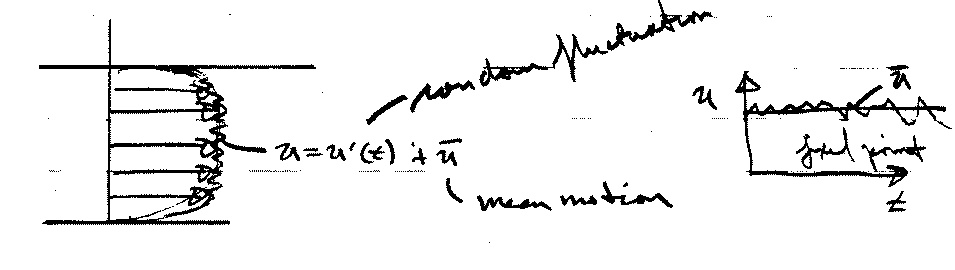 random fluctuation
u = u'(t) + u̅
mean motion
u
u̅
fixed point
t